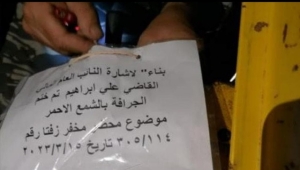 بناء" لاشارة النائب العام المالي
القاضي علي ابراهيم تم ختم
الجرافة بالشمع الاحمر
موضوع محضر مخفر زفتا رقم
٣٠٥/١١٤ تاريخ ٢٠٢٣/٣/١٥